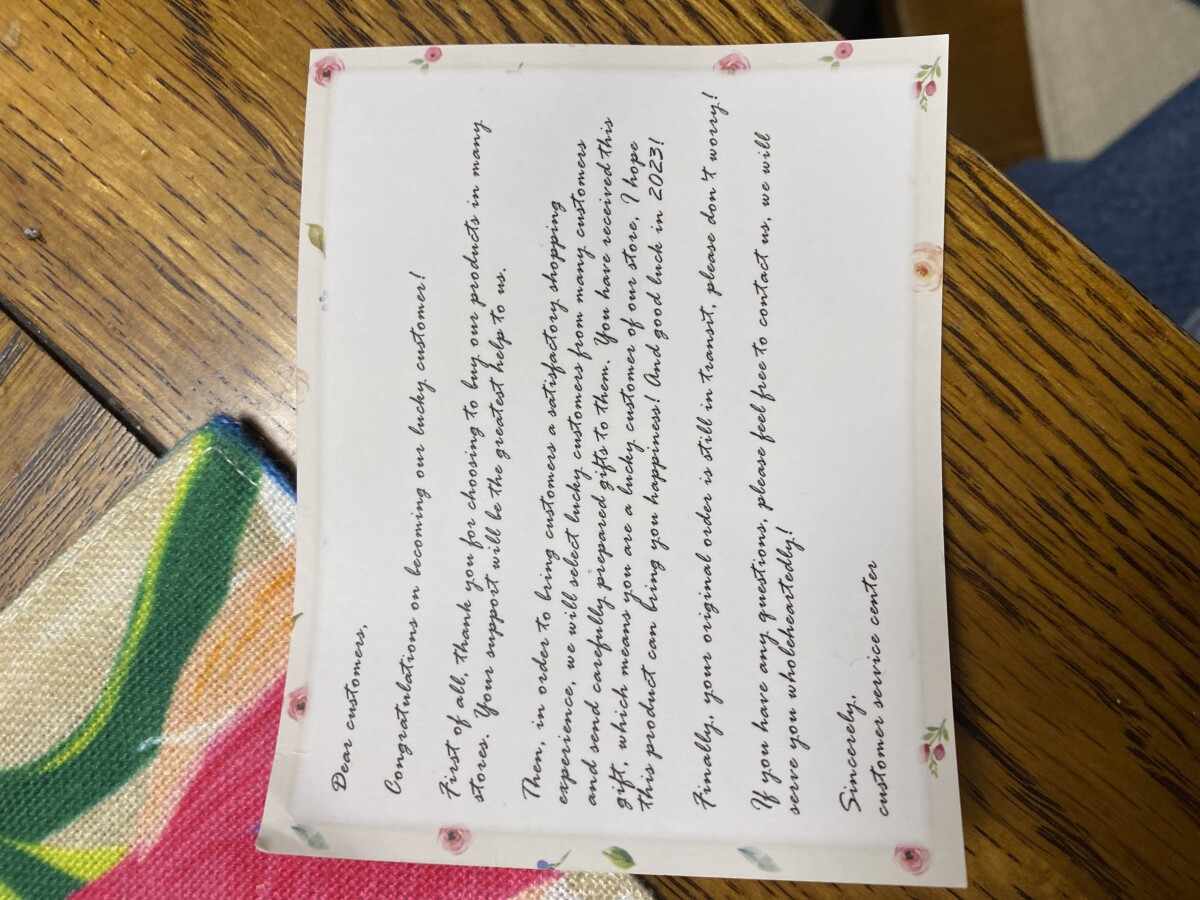 Dear customers,
Congratulations on becoming our lucky customer!
First of all, thank you for choosing to buy our products in many
stores. Your support will be the greatest help to us.
Then, in order to bring customers a satisfactory shopping
experience, we will select lucky customers from many customers
and send carefully prepared gifts to them. You have received this
gift, which means you are a lucky customer of our store. I hope
this product can bring you happiness! And good luck in 2023!
Finally, your original order is still in transit, please don't worry!
If you have any questions, please feel free to contact us, we will
serve you wholeheartedly!
Sincerely,
customer service center